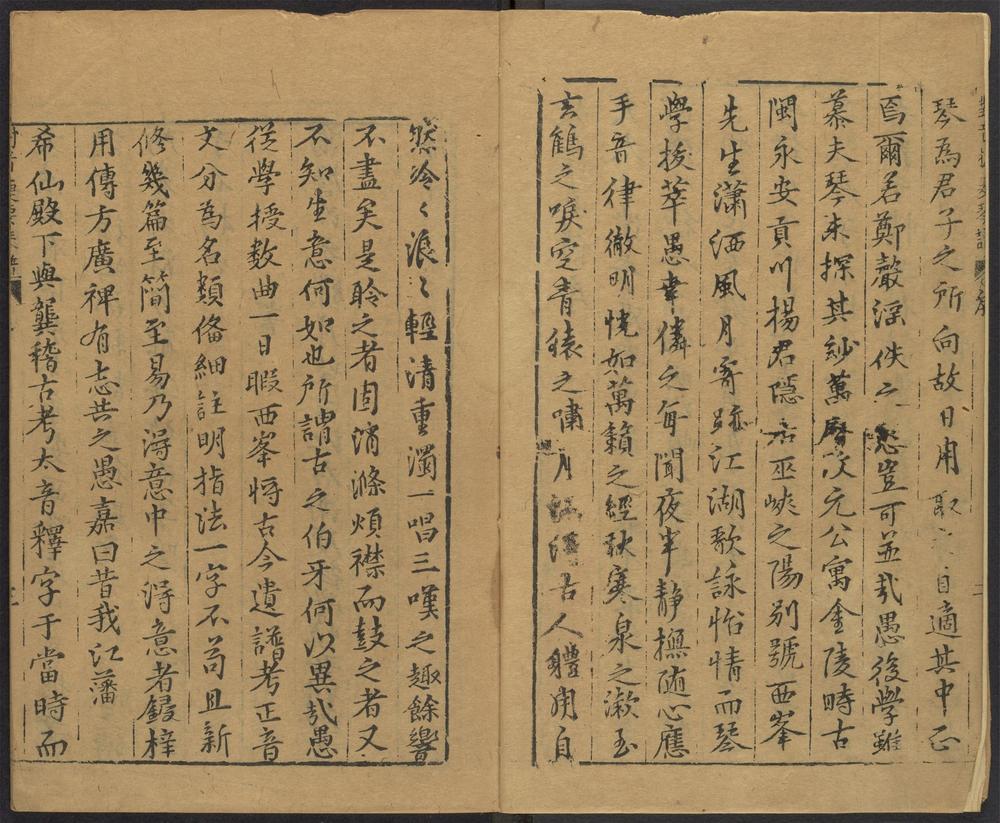 琴為君子之所向故日用取自適其中正
焉爾若鄭聲滛佚之 豈可並㢤愚後學雖
慕夫琴未探其紗萬曆次元公寓金陵時古
閩永安貢川楊君隱居巫峽之陽別號西峯
先生瀟洒風月寄跡江湖歌詠怡情而琴
學拔萃愚幸儕之每聞夜半靜撫随心應
手音律徹明恍如萬籟之經秋寒泉之漱玉
玄鶴之唳空青猿之嘯月江 古人軆用自
然泠〻浪〻輕清重濁一唱三嘆之趣餘響
不盡矣是聆之者固消滌煩襟而鼓之者又
不知生意何如也所謂古之伯牙何以異㢤愚
從學授数曲一日暇西峯將古今遺譜考正音
文分為名類俻細註明指法一字不苟且新
修幾篇至簡至易乃淂意中之淂意者鋟梓
用傳方廣裨有志共之愚嘉曰昔我江藩
希仙殿下與龔稽古考太音釋字于當時而